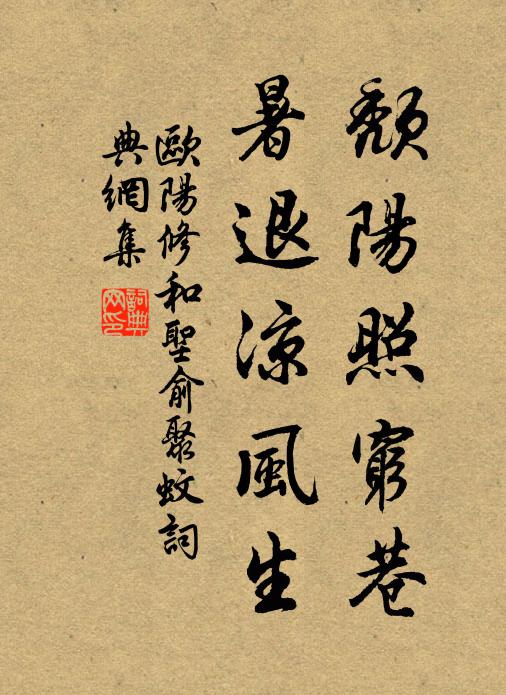 頹陽照窮巷
暑退涼風生
歐陽修和聖俞聚蚊詞
典網集
詞典網印